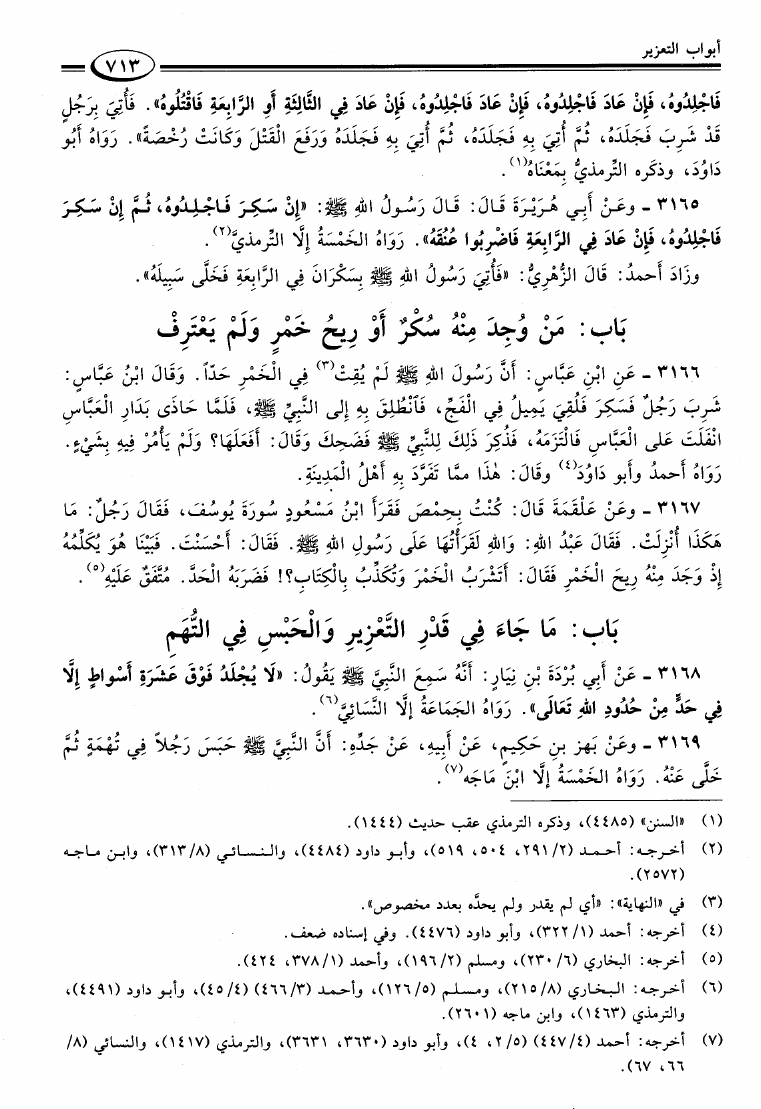 أبواب التعزير
٧١٣
فَاجْلِدُوهُ، فَإِنْ عَادَ فَاجْلِدُوهُ، فَإِنْ عَادَ فَاجْلِدُوهُ، فَإِنْ عَادَ فِي الثَّالِثَةِ أَوِ الرَّابِعَةِ فَاقْتُلُوهُ». فَأُتِيَ بِرَجُلٍ
قَدْ شَرِبَ فَجَلَدَهُ، ثُمَّ أُتِيَ بِهِ فَجَلَدَهُ، ثُمَّ أُتِيَ بِهِ فَجَلَدَهُ وَرَفَعَ الْقَتْلَ وَكَانَتْ رُخْصَةً». رَوَاهُ أَبُو
دَاوُدَ، وذكَره التِّرمذيُّ بِمَعْنَاهُ(١).
٣١٦٥ ـ وعَنْ أَبِي هُرَيْرَةَ قَالَ: قَالَ رَسُولُ اللهِ ﷺ: «إِنْ سَكِرَ فَاجْلِدُوهُ، ثُمَّ إِنْ سَكِرَ
فَاجْلِدُوهُ، فَإِنْ عَادَ فِي الرَّابِعَةِ فَاضْرِبُوا عُنُقَهُ». رَوَاهُ الْخَمْسَةُ إِلَّا التِّرمذيَّ(٢).
وزَادَ أَحمدُ: قَالَ الزُّهْرِيُّ: «فَأُتِيَ رَسُولُ اللهِ ﷺ بِسَكْرَانَ فِي الرَّابِعَةِ فَخَلَّى سَبِيلَهُ».
بَاب: مَنْ وُجِدَ مِنْهُ سُكْرٌ أَوْ رِيحُ خَمْرٍ وَلَمْ يَعْتَرِفْ
٣١٦٦ ـ عَنِ ابْنِ عَبَّاسٍ: أَنَّ رَسُولَ اللهِ ﷺ لَمْ يُقِتْ(٣) فِي الْخَمْرِ حَدّاً. وَقَالَ ابْنُ عَبَّاسٍ:
شَرِبَ رَجُلٌ فَسَكِرَ فَلُقِيَ يَمِيلُ فِي الْفَجِّ، فَآنْطُلِقَ بِهِ إِلى النَّبِيِّ ﷺ، فَلَمَّا حَاذَى بَدَارِ الْعَبَّاسِ
انْفَلَتَ عَلى الْعَبَّاسِ فَالْتَزَمَهُ، فَذُكِرَ ذَلِكَ لِلنَّبِيِّ ﷺ فَضَحِكَ وَقَالَ: أَفَعَلَهَا؟ وَلَمْ يَأْمُرْ فِيهِ بِشَيْءٍ.
رَوَاهُ أَحمدُ وأَبو دَاوُدَ(٤) وقَالَ: هٰذَا ممَّا تَفَرَّدَ بِهِ أَهْلُ الْمَدِينَةِ.
٣١٦٧ ـ وعَنْ عَلْقَمَةَ قَالَ: كُنْتُ بِحِمْصَ فَقَرَأَ ابْنُ مَسْعُودٍ سُورَةَ يُوسُفَ، فَقَالَ رَجُلٌ: مَا
هَكَذَا أُنْزِلَتْ. فَقَالَ عَبْدُ اللهِ: وَاللهِ لَقَرَأْتُهَا عَلَى رَسُولِ اللهِ ﷺ. فَقَالَ: أَحْسَنْتَ. فَبَيْنَا هُوَ يُكَلِّمُهُ
إِذْ وَجَدَ مِنْهُ رِيحَ الْخَمْرِ فَقَالَ: أَتَشْرَبُ الْخَمْرَ وَتُكَذِّبُ بِالْكِتَابِ؟! فَضَرَبَهُ الْحَدَّ. مُتَّفَقٌ عَلَيْهِ(٥).
بَاب: مَا جَاءَ فِي قَدْرِ التَّعْزِيرِ وَالْحَبْسِ فِي التُّهَمِ
٣١٦٨ ـ عَنْ أَبِي بُرْدَةَ بْنِ نِيَارٍ: أَنَّهُ سَمِعَ النَّبِيَّ ﷺ يَقُولُ: «لَا يُجْلَدُ فَوْقَ عَشَرَةِ أَسْوَاطٍ إِلَّا
فِي حَدٍّ مِنْ حُدُودِ اللهِ تَعَالَى». رَوَاهُ الجَمَاعَةُ إِلَّا النَّسَائِيَّ(٦).
٣١٦٩ ـ وعَنْ بَهزِ بنِ حَكِيمٍ، عَنْ أَبِيهِ، عَنْ جَدِّهِ: أَنَّ النَّبِيَّ ﷺ حَبَسَ رَجُلاً فِي تُهْمَةٍ ثُمَّ
خَلَّى عَنْهُ. رَوَاهُ الخَمْسَةُ إِلَّا ابْنَ مَاجَه(٧).
(١) «السنن» (٤٤٨٥)، وذكره الترمذي عقب حديث (١٤٤٤).
(٢) أخرجه: أحمد (٢/ ٢٩١، ٥٠٤، ٥١٩)، وأبو داود (٤٤٨٤)، والنسائي (٨/ ٣١٣)، وابن ماجه
(٢٥٧٢).
(٣) في «النهاية»: «أي لم يقدر ولم يحدَّه بعدد مخصوص».
(٤) أخرجه: أحمد (١/ ٣٢٢)، وأبو داود (٤٤٧٦). وفي إسناده ضعف.
(٥) أخرجه: البخاري (٦/ ٢٣٠)، ومسلم (٢/ ١٩٦)، وأحمد (١/ ٣٧٨، ٤٢٤.
(٦) أخرجه: البخاري (٨/ ٢١٥)، ومسلم (٥/ ١٢٦)، وأحمد (٣/ ٤٦٦) (٤/ ٤٥)، وأبو داود (٤٤٩١)،
والترمذي (١٤٦٣)، وابن ماجه (٢٦٠١).
(٧) أخرجه: أحمد (٤/ ٤٤٧) (٥/ ٢، ٤)، وأبو داود (٣٦٣٠، ٣٦٣١)، والترمذي (١٤١٧)، والنسائي (٨/
٦٦، ٦٧).